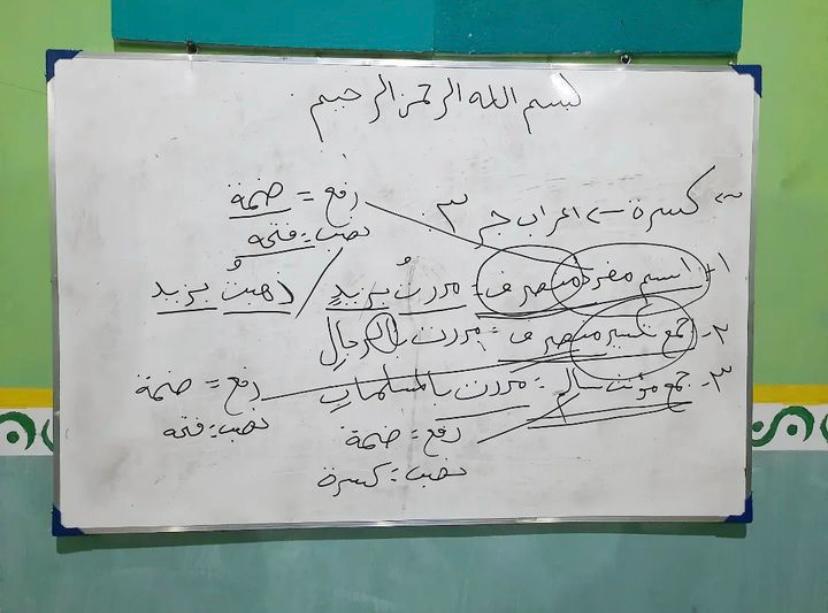 بسم الله الرحمن الرحيم
كسرة -> اعراب جر ٣
رفع = ضمة
نصب = فتحة
١- اسم مفرد منصرف = مررتُ بزيدٍ / ذهبتُ بزيد
٢- جمع تكسير منصرف = مررت بالرجالِ
٣- جمع مؤنث سالم = مررت بالمسلماتِ
رفع = ضمة
نصب = فتحة
رفع = ضمة
نصب = كسرة